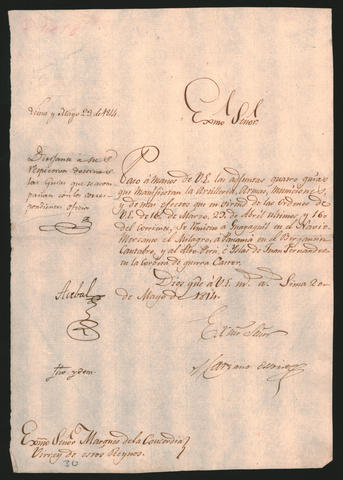 Lima y Mayo 23 de 1814.
Exmo. Señor.
Dirijanse a sus
respectivos destinos
las Guias que se acom-
pañan con la corres-
pondiente oficio
Acebal
fho. ydem.
Paso á manos de V.E. las adjuntas quatro guias
que manifiestan la Artilleria, Armas, municiones,
y demas efectos que en virtud de las ordenes de
V.E. de 16 de Marzo, 23 de Abril ultimos, y 16
del corriente, se remiten á Guayaquil en el Navio
Mercante el Milagro, á Panamá en el Bergantin
Cantabro, y al Alto Perú, é Islas de Juan Fernandez
en la Corbeta de guerra
Dios gue. á V.E. ms. as. Lima 20
de Mayo de 1814.
Exmo. Señor
Exmo. Señor Marques de la Concordia
Virrey de estos Reynos.
30